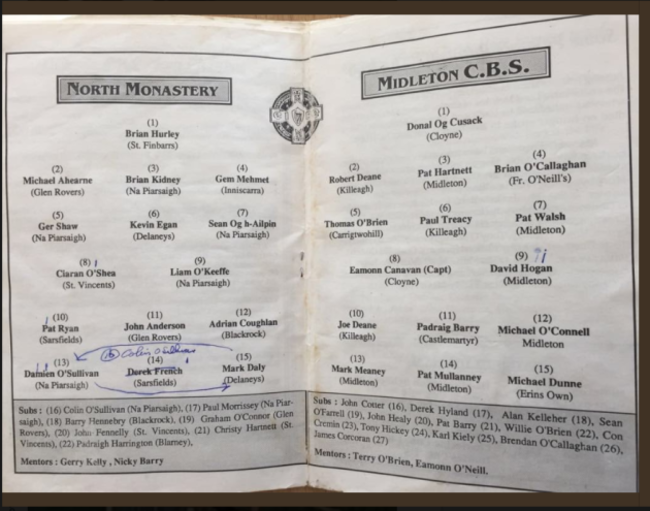 NORTH MONASTERY
(1)
Brian Hurley
(St. Finbarrs)
(2) (3) (4)
Michael Ahearne Brian Kidney Gem Mehmet
(Glen Rovers) (Na Piarsaigh) (Inniscarra)
(5) (6) (7)
Ger Shaw Kevin Egan Sean Og h-Ailpin
(Na Piarsaigh) (Delaneys) (Na Piarsaigh)
(8) (9)
Ciaran O'Shea Liam O'Keeffe
(St. Vincents) (Na Piarsaigh)
(10) (11) (12)
Pat Ryan John Anderson Adrian Coughlan
(Sarsfields) (Glen Rovers) (Blackrock)
(16) Colin O'Sullivan
(13) (14) (15)
Damien O'Sullivan Derek French Mark Daly
(Na Piarsaigh) (Sarsfields) (Delaneys)
Subs : (16) Colin O'Sullivan (Na Piarsaigh), (17) Paul Morrissey (Na Piar-
saigh), (18) Barry Hennebry (Blackrock), (19) Graham O'Connor (Glen
Rovers), (20) John Fennelly (St. Vincents), (21) Christy Hartnett (St.
Vincents), (22) Padraigh Harrington (Blarney),
Mentors : Gerry Kelly , Nicky Barry
MIDLETON C.B.S.
(1)
Donal Og Cusack
(Cloyne)
(2) (3) (4)
Robert Deane Pat Hartnett Brian O'Callaghan
(Killeagh) (Midleton) (Fr. O'Neill's)
(5) (6) (7)
Thomas O'Brien Paul Treacy Pat Walsh
(Carrigtwohill) (Killeagh) (Midleton)
(8) (9)
Eamonn Canavan (Capt) David Hogan
(Cloyne) (Midleton)
(10) (11) (12)
Joe Deane Padraig Barry Michael O'Connell
(Killeagh) (Castlemartyr) Midleton
(13) (14) (15)
Mark Meaney Pat Mullanney Michael Dunne
(Midleton) (Midleton) (Erins Own)
Subs : John Cotter (16), Derek Hyland (17), Alan Kelleher (18), Sean
O'Farrell (19), John Healy (20), Pat Barry (21), Willie O'Brien (22), Con
Cremin (23), Tony Hickey (24), Karl Kiely (25), Brendan O'Callaghan (26),
James Corcoran (27)
Mentors : Terry O'Brien, Eamonn O'Neill.